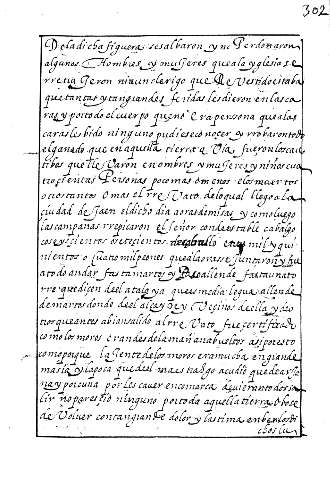 302
De la dicha figuera se salbaron, y ni Perdonaron
algunos. Hombres, y mugeres que a la yglesia se
rretrugeron ni a un clerigo que Revestido estaba
que tantas y tan grandes feridas les dieron en las ca
ras y por todo el cuerpo que no era persona que a las
caras les bido ninguno pudiese conoçer y rrobaron todo
el ganado que en aquella tierra avia fueron los cau
tibos que llevaron onombres y mugeres y niños cua
troçientas Personas poco mas o menos e los muertos
ocios tantos o mas el rre Vato de lo qual llego a la
ciudad de Jaen el dicho dia a oras de misas y como luego
las campanas rrepicaron el señor condestable cabalgo
cos e yscientos o setecientos de caballo mil y qui
nientos o cuatro mil peones que a la ora se juntaron y fu
ato do andar fasta martos y Pasallende fasta un ato
rre que diçen del atalaya que es media legua allende
de martos donde del alcayde y Veçinos de villa y de o
tros que antes abian salido al rre Vato fue certificado
como los moros eran desde la mañana bueltos asi por esto
como porque la gente de los moros era mucha en grande
masia y la poca que del maestradgo acudio quedar se
na y por cuna por les caver en comarca de quier an todos sa
lir no parescio ninguno por toda aquella tierra obose
de Volver con tan grande dolor y lastima en ber los di
chos lu